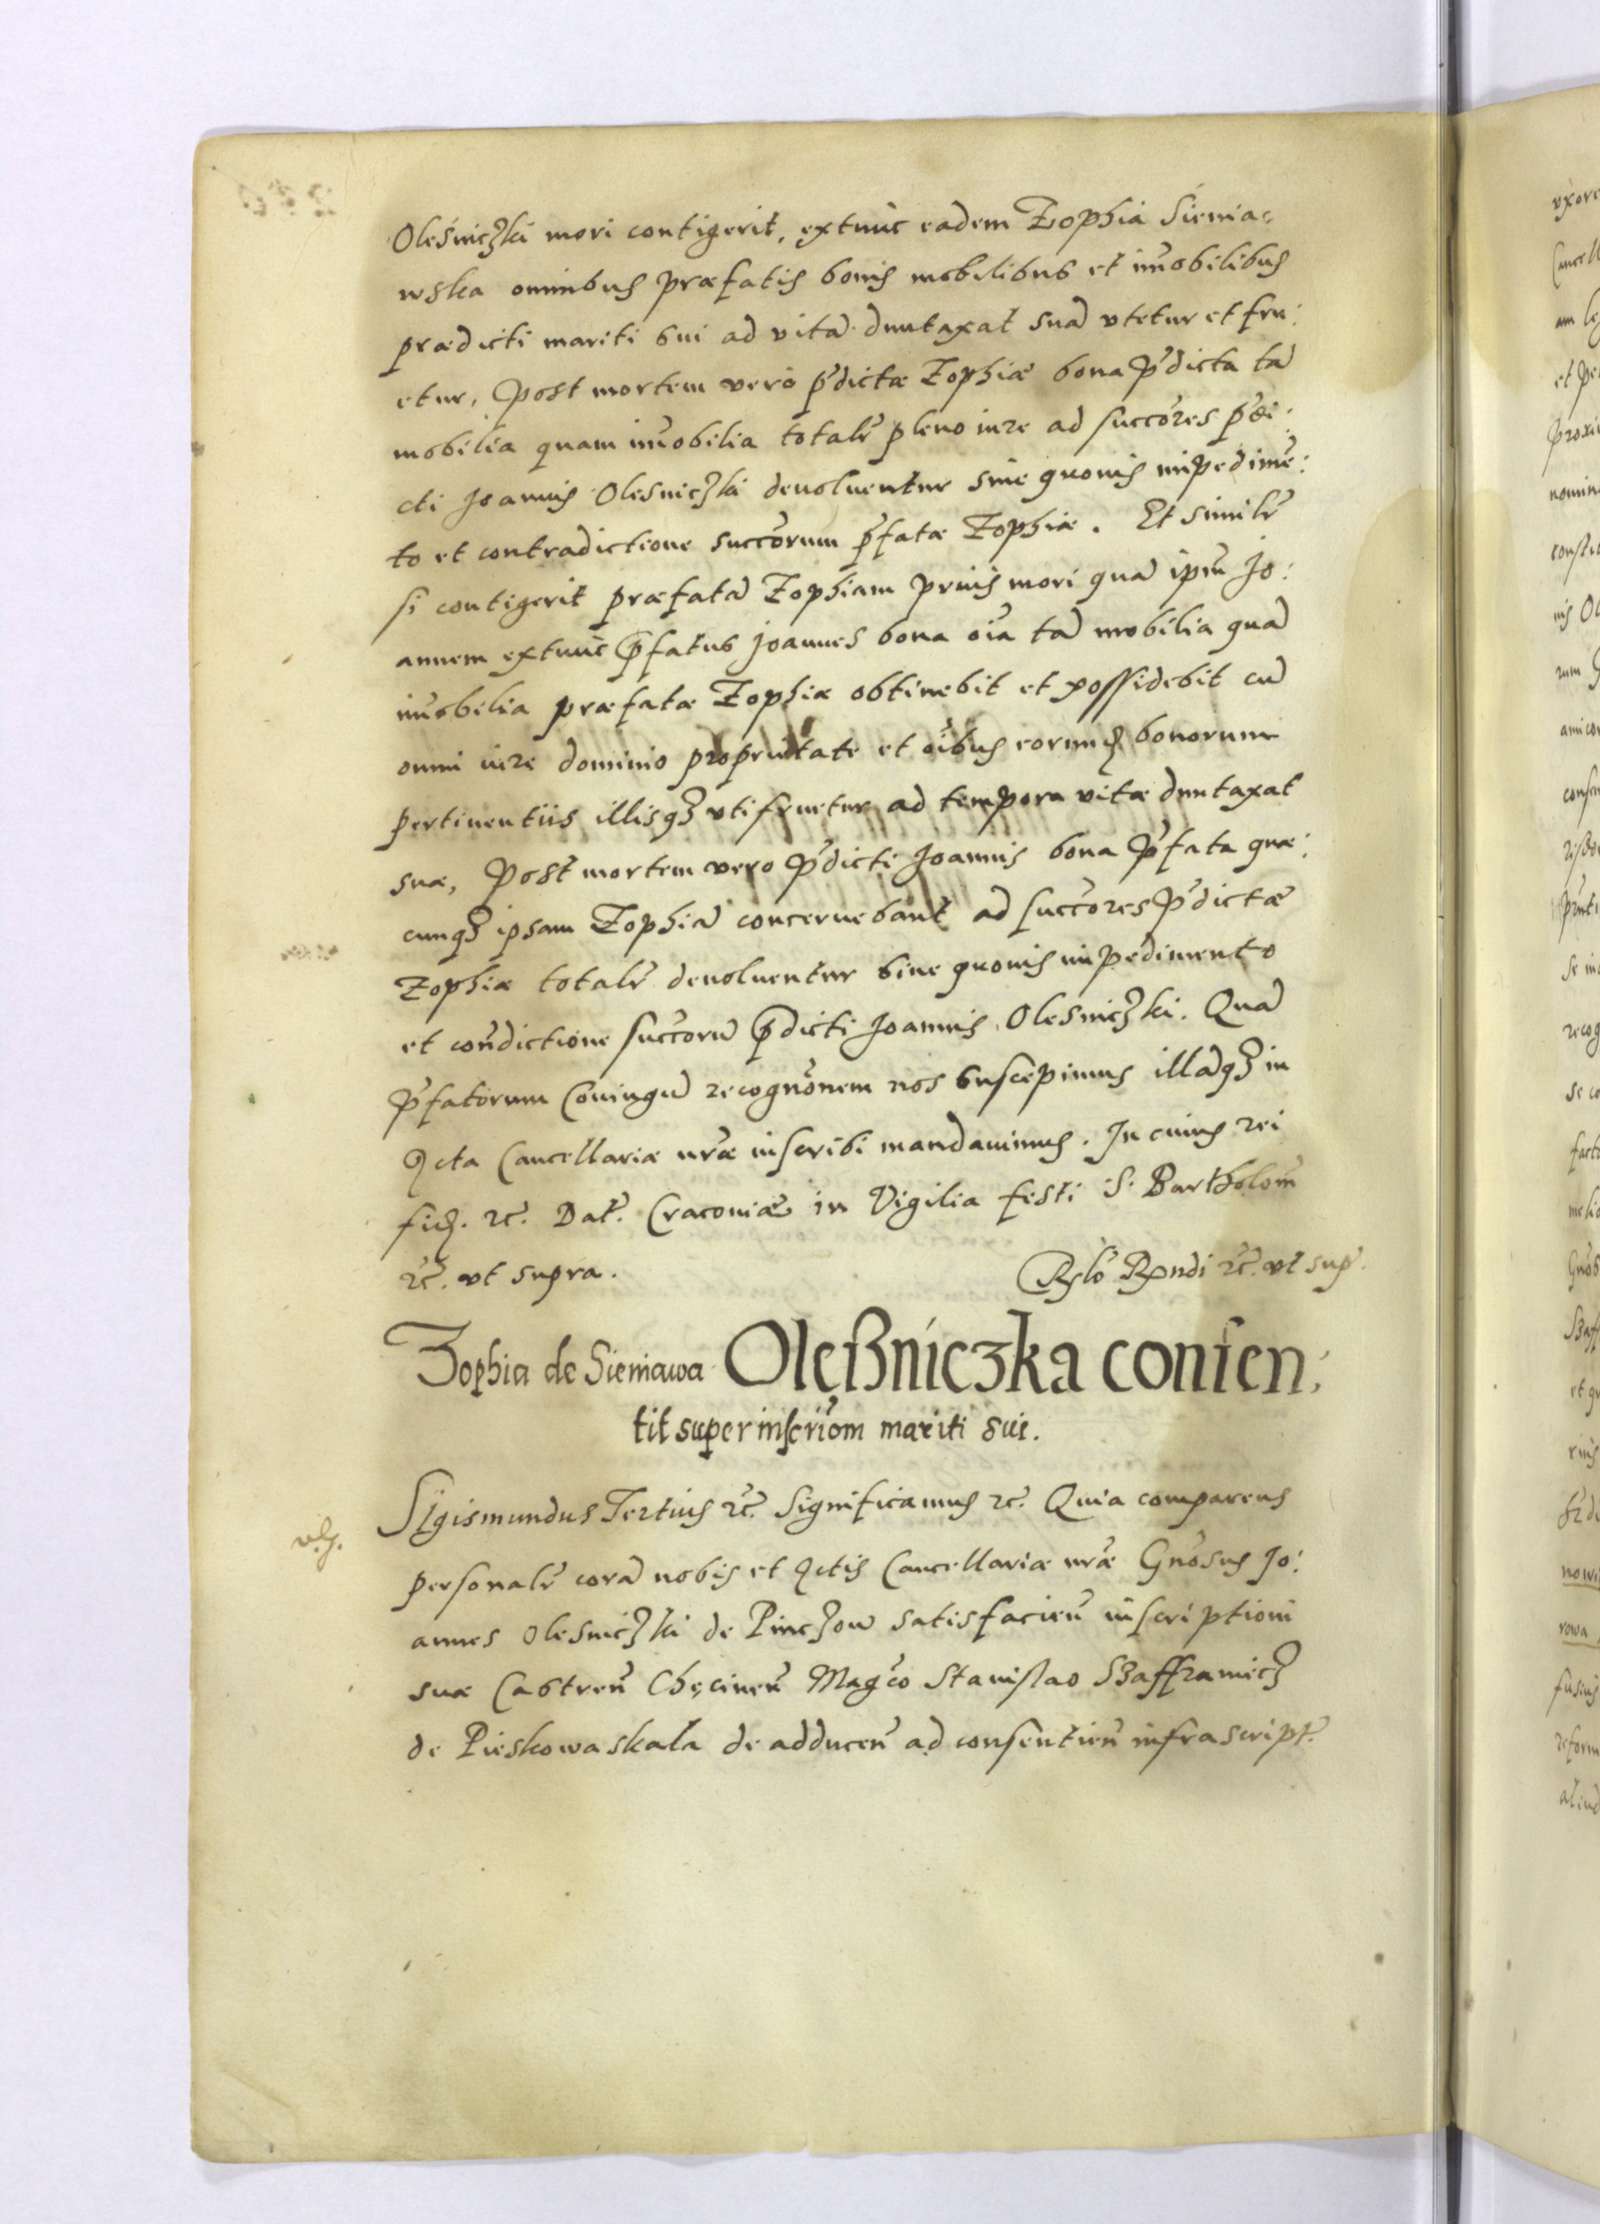 Oleśniczki mori contigerit, extunc eadem Zophia Sienia-
wska omnibus præfatis bonis mobilibus et im̄obilibus
prædicti mariti sui ad vitā duntaxat suā vtetur et fru:
etur, Post mortem vero p̄dictæ Zophiæ bona p̄dicta tā
mobilia quam im̄obilia totalr̄ pleno iure ad succ̄ores p̄di:
cti Joannis Olesniczki deuoluentur sine quouis impedimē:
to et contradictione succ̄orum p̄fatæ Zophiæ. Et similr̄
si contigerit præfatā Zophiam prius mori quā ipm̄ Jo:
annem extunc p̄fatus Joannes bona oīa tā mobilia quā
im̄obilia præfatæ Zophiæ obtinebit et possidebit cū
omni iure dominio proprietate et oībus eorund bonorum
pertinentiis illisqʒ vtifruetur ad tempora vitæ duntaxat
suæ, Post mortem vero p̄dicti Joannis bona p̄fata quæ:
cunqʒ ipsam Zophiā concernebant ad succ̄ores p̄dictæ
Zophiæ totalr̄ deuoluentur sine quouis impedimento
et con̄dictione succ̄orū p̄dicti Joannis Olesniczki. Quā
p̄fatorum Coniugū recogn̄onem nos suscepimus illāqʒ in
Acta Cancellariæ nr̄æ inscribi mandauimus. In cuius rei
fid. ꝛc̄. Dat̄. Cracouiæ in Vigilia festi S. Bartholom̄
ꝛc̄. vt supra.
Rlō Rndi ꝛc̄. vt sup̄.
Zophia de Sieniawa Oleßniczka consen:
tit super inscrip̄om mariti sui.
Sigismundus Tertius ꝛc̄. Significamus ꝛc̄. Quia comparens
personalr̄ corā nobis et Actis Cancellariæ nr̄æ Gn̄osus Jo:
annes Olesniczki de Pinczow satisfacien̄ inscriptioni
suæ Castren̄ Chęcinen̄ Magc̄o Stanislao Szaffraniecz
de Pieskowaskala de adducen̄ ad consentien̄ infrascript̄.